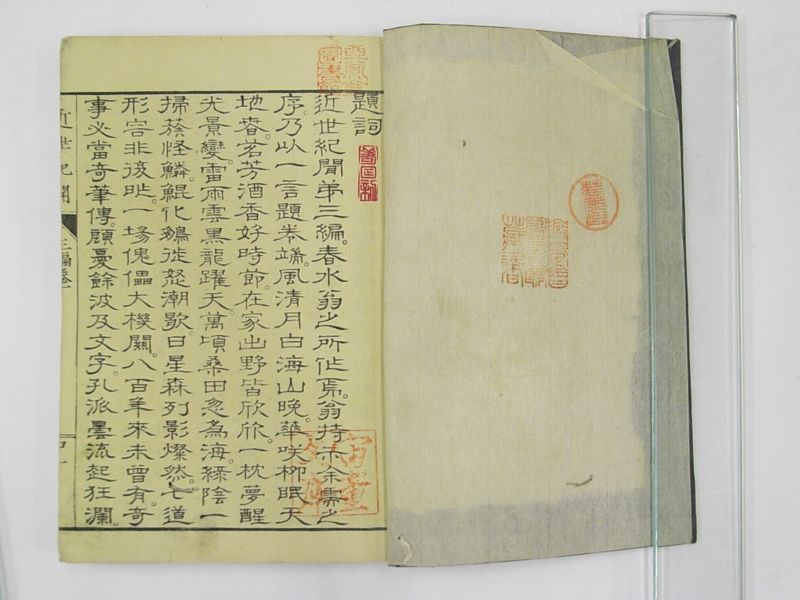 題詞
近世紀聞第三編。春水翁之所作焉。翁持示余需之
序。乃以一言題卷端。風清月白海山晩。華咲柳眠天
地春。茗芳酒香好時節。在家出野皆欣欣。一枕夢醒
光景變。雷雨雲黑龍躍天。萬頃桑田忽為海。綠陰一
掃蔟怪鱗。鯤化鵵徙怒潮歇。日星森列影燦然。七道
形容非復昨。一場傀儡大機關。八百年來未曾有。奇
事必當奇筆傳。顧憂餘波及文字。孔派曇流起狂瀾。
近世紀聞
三編卷一